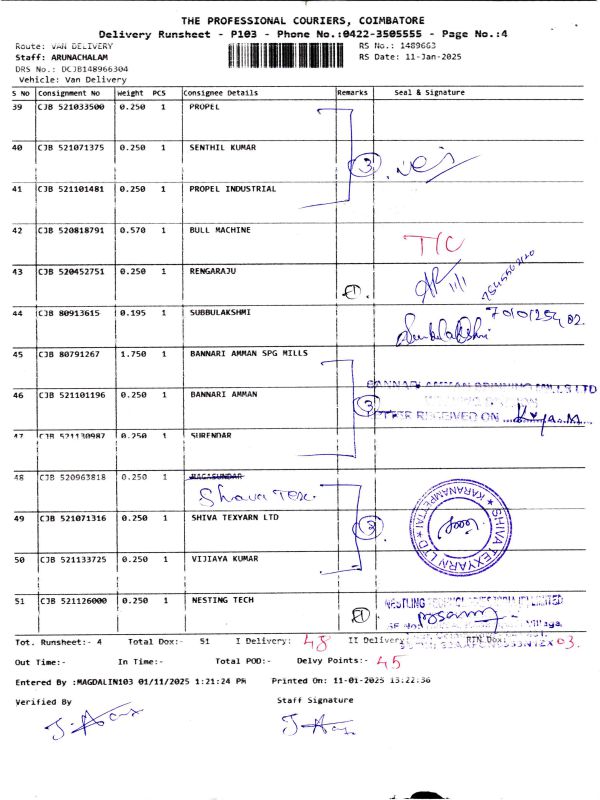 THE PROFESSIONAL COURIERS, COIMBATORE
Delivery Runsheet - P103 - Phone No.:0422-3505555 - Page No.:4
Route: VAN DELIVERY RS No.: 1489663
Staff: ARUNACHALAM RS Date: 11-Jan-2025
DRS No.: DCJB148966304
Vehicle: Van Delivery
S No Consignment No Weight PCS Consignee Details Remarks Seal & Signature
39 CJB 521033500 0.250 1 PROPEL
40 CJB 521071375 0.250 1 SENTHIL KUMAR
3
41 CJB 521101481 0.250 1 PROPEL INDUSTRIAL
42 CJB 520818791 0.570 1 BULL MACHINE
T/C
43 CJB 520452751 0.250 1 RENGARAJU
44 CJB 80913615 0.195 1 SUBBULAKSHMI
45 CJB 80791267 1.750 1 BANNARI AMMAN SPG MILLS
BANNARI AMMAN SPINNING MILLS LTD
46 CJB 521101196 0.250 1 BANNARI AMMAN 3
RECEIVED ON
47 CJB 521130987 0.250 1 SURENDAR
48 CJB 520963818 0.250 1
Shava Tex.
49 CJB 521071316 0.250 1 SHIVA TEXYARN LTD 3
SHIVA TEXYARN LTD ★ KARANAMPETTAI ★
50 CJB 521133725 0.250 1 VIJIAYA KUMAR
51 CJB 521126000 0.250 1 NESTING TECH
Village,
Tot. Runsheet:- 4 Total Dox:- 51 I Delivery: 48 II Delivery: RTN Dox: 03.
Out Time:- In Time:- Total POD:- Delvy Points:- 45
Entered By :MAGDALIN103 01/11/2025 1:21:24 PM Printed On: 11-01-2025 13:22:36
Verified By Staff Signature